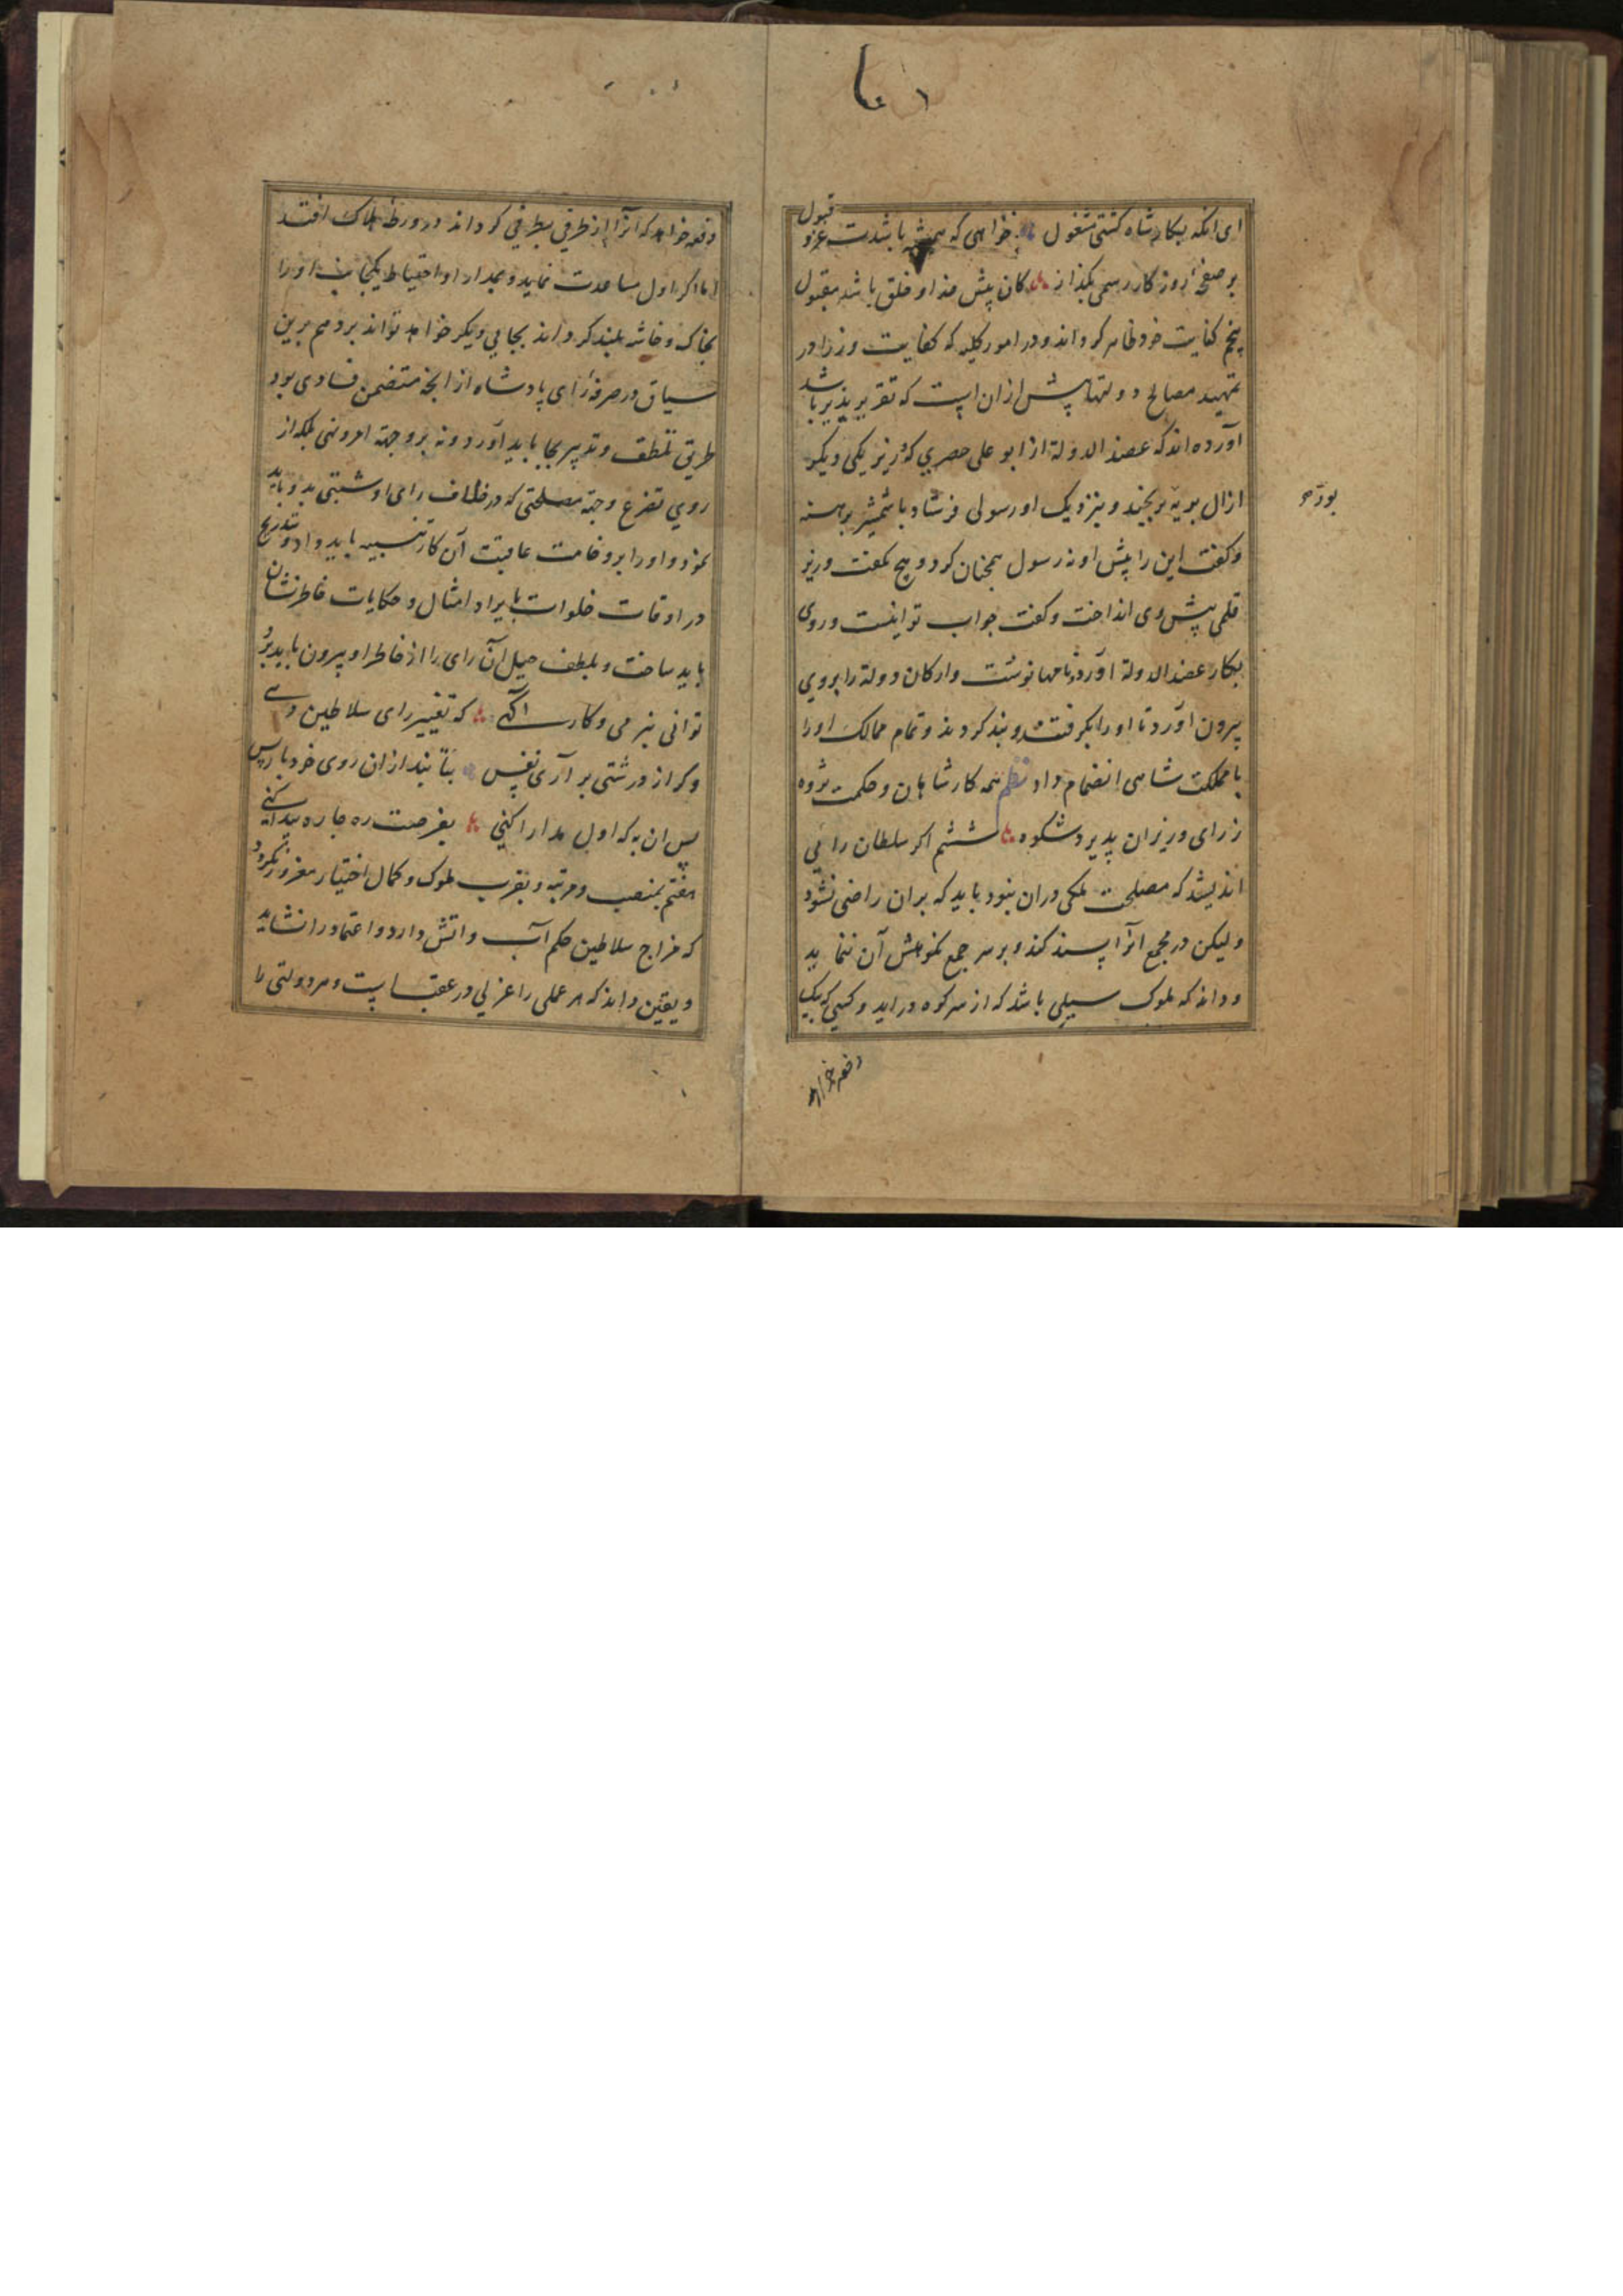 ای انکه بکار شاه کشتی مشغول خواهی که همیشه باشدت عز و قبول
بر صفحهٔ روز کار رسمی بگذار کان پیش خدا و خلق باشد مقبول
پنجم کفایت خود ظاهر کرداند و در امور کلیه که کفایت وزرا در
تمهید مصالح دولتها پیش ازان است که تقریر پذیر باشد
آورده اند که عضد الدولة از ابو علی حصری که وزیر یکی دیکر
از ال بویه بود برنجید و بنزدیک او رسولی فرستاد با شمشیر برهنه
و کفت این را پیش او نه رسول همچنان کرد و هیچ نکفت وزیر
قلمی پیش وی انداخت و کفت جواب تو اینست و روی
بکار عضد الدولة آورد و نامها نوشت و ارکان دولة را بروی
بیرون آورد تا او را بکرفتند و بند کردند و تمام ممالک او را
با مملکت شاهی انضمام داد نظم همه کار شاهان و حکمت پژوه
ز رای وزیران پذیرد شکوه ششم اکر سلطان رائی
اندیشد که مصلحت ملکی دران نبود باید که بران راضی نشود
و لیکن در مجمع انرا پسند کند و بر سر جمع نکوهش آن ننماید
و داند که ملوک سیلی باشد که از سر کوه دراید و کسی که بیک
دفعه خواهد
دفعه خواهد که انرا از طرفی بطرفی کرداند در ورطه هلاک افتد
اما اکر اول مساعدت نماید و بمدارا و احتیاط یکجانب او را
بخاک و خاشه بلند کرداند بجانبی دیکر خواهد تواند برد هم برین
سیاق در صرف رای پادشاه از انچه متضمن فسادی بود
طریق تلطف و تدبیر بجا باید آورد و نه بر وجه امر و نهی بلکه از
روی تضرع وجه مصلحتی که در خلاف رای او شبتی بدو باید
نمود و او را بر وخامت عاقبت آن کار تنبیه باید داد و بتدریج
در اوقات خلوات بایراد امثال و حکایات خاطرنشان
باید ساخت و بلطف حیل آن رای را از خاطر او بیرون باید برد
توانی بنرمی و کار آکهی که تغییر رای سلاطین دهی
وکر از درشتی بر آری نفس بتابند ازان روی خود باز پس
پس ان به که اول مدارا کنی بفرصت ره چاره پیدا کنی
هفتم بمنصب و مرتبه و بقرب ملوک و کمال اختیار مغرور نکردد
که مزاج سلاطین حکم آب و اتش دارد و اعتماد را نشاید
و یقین داند که هر عملی را عزلی در عقب است و هر دولتی را